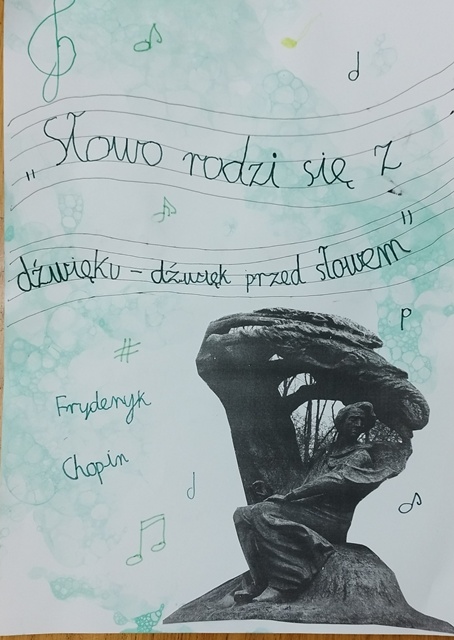 „Słowo rodzi się z
dźwięku – dźwięk przed słowem"
Fryderyk
Chopin